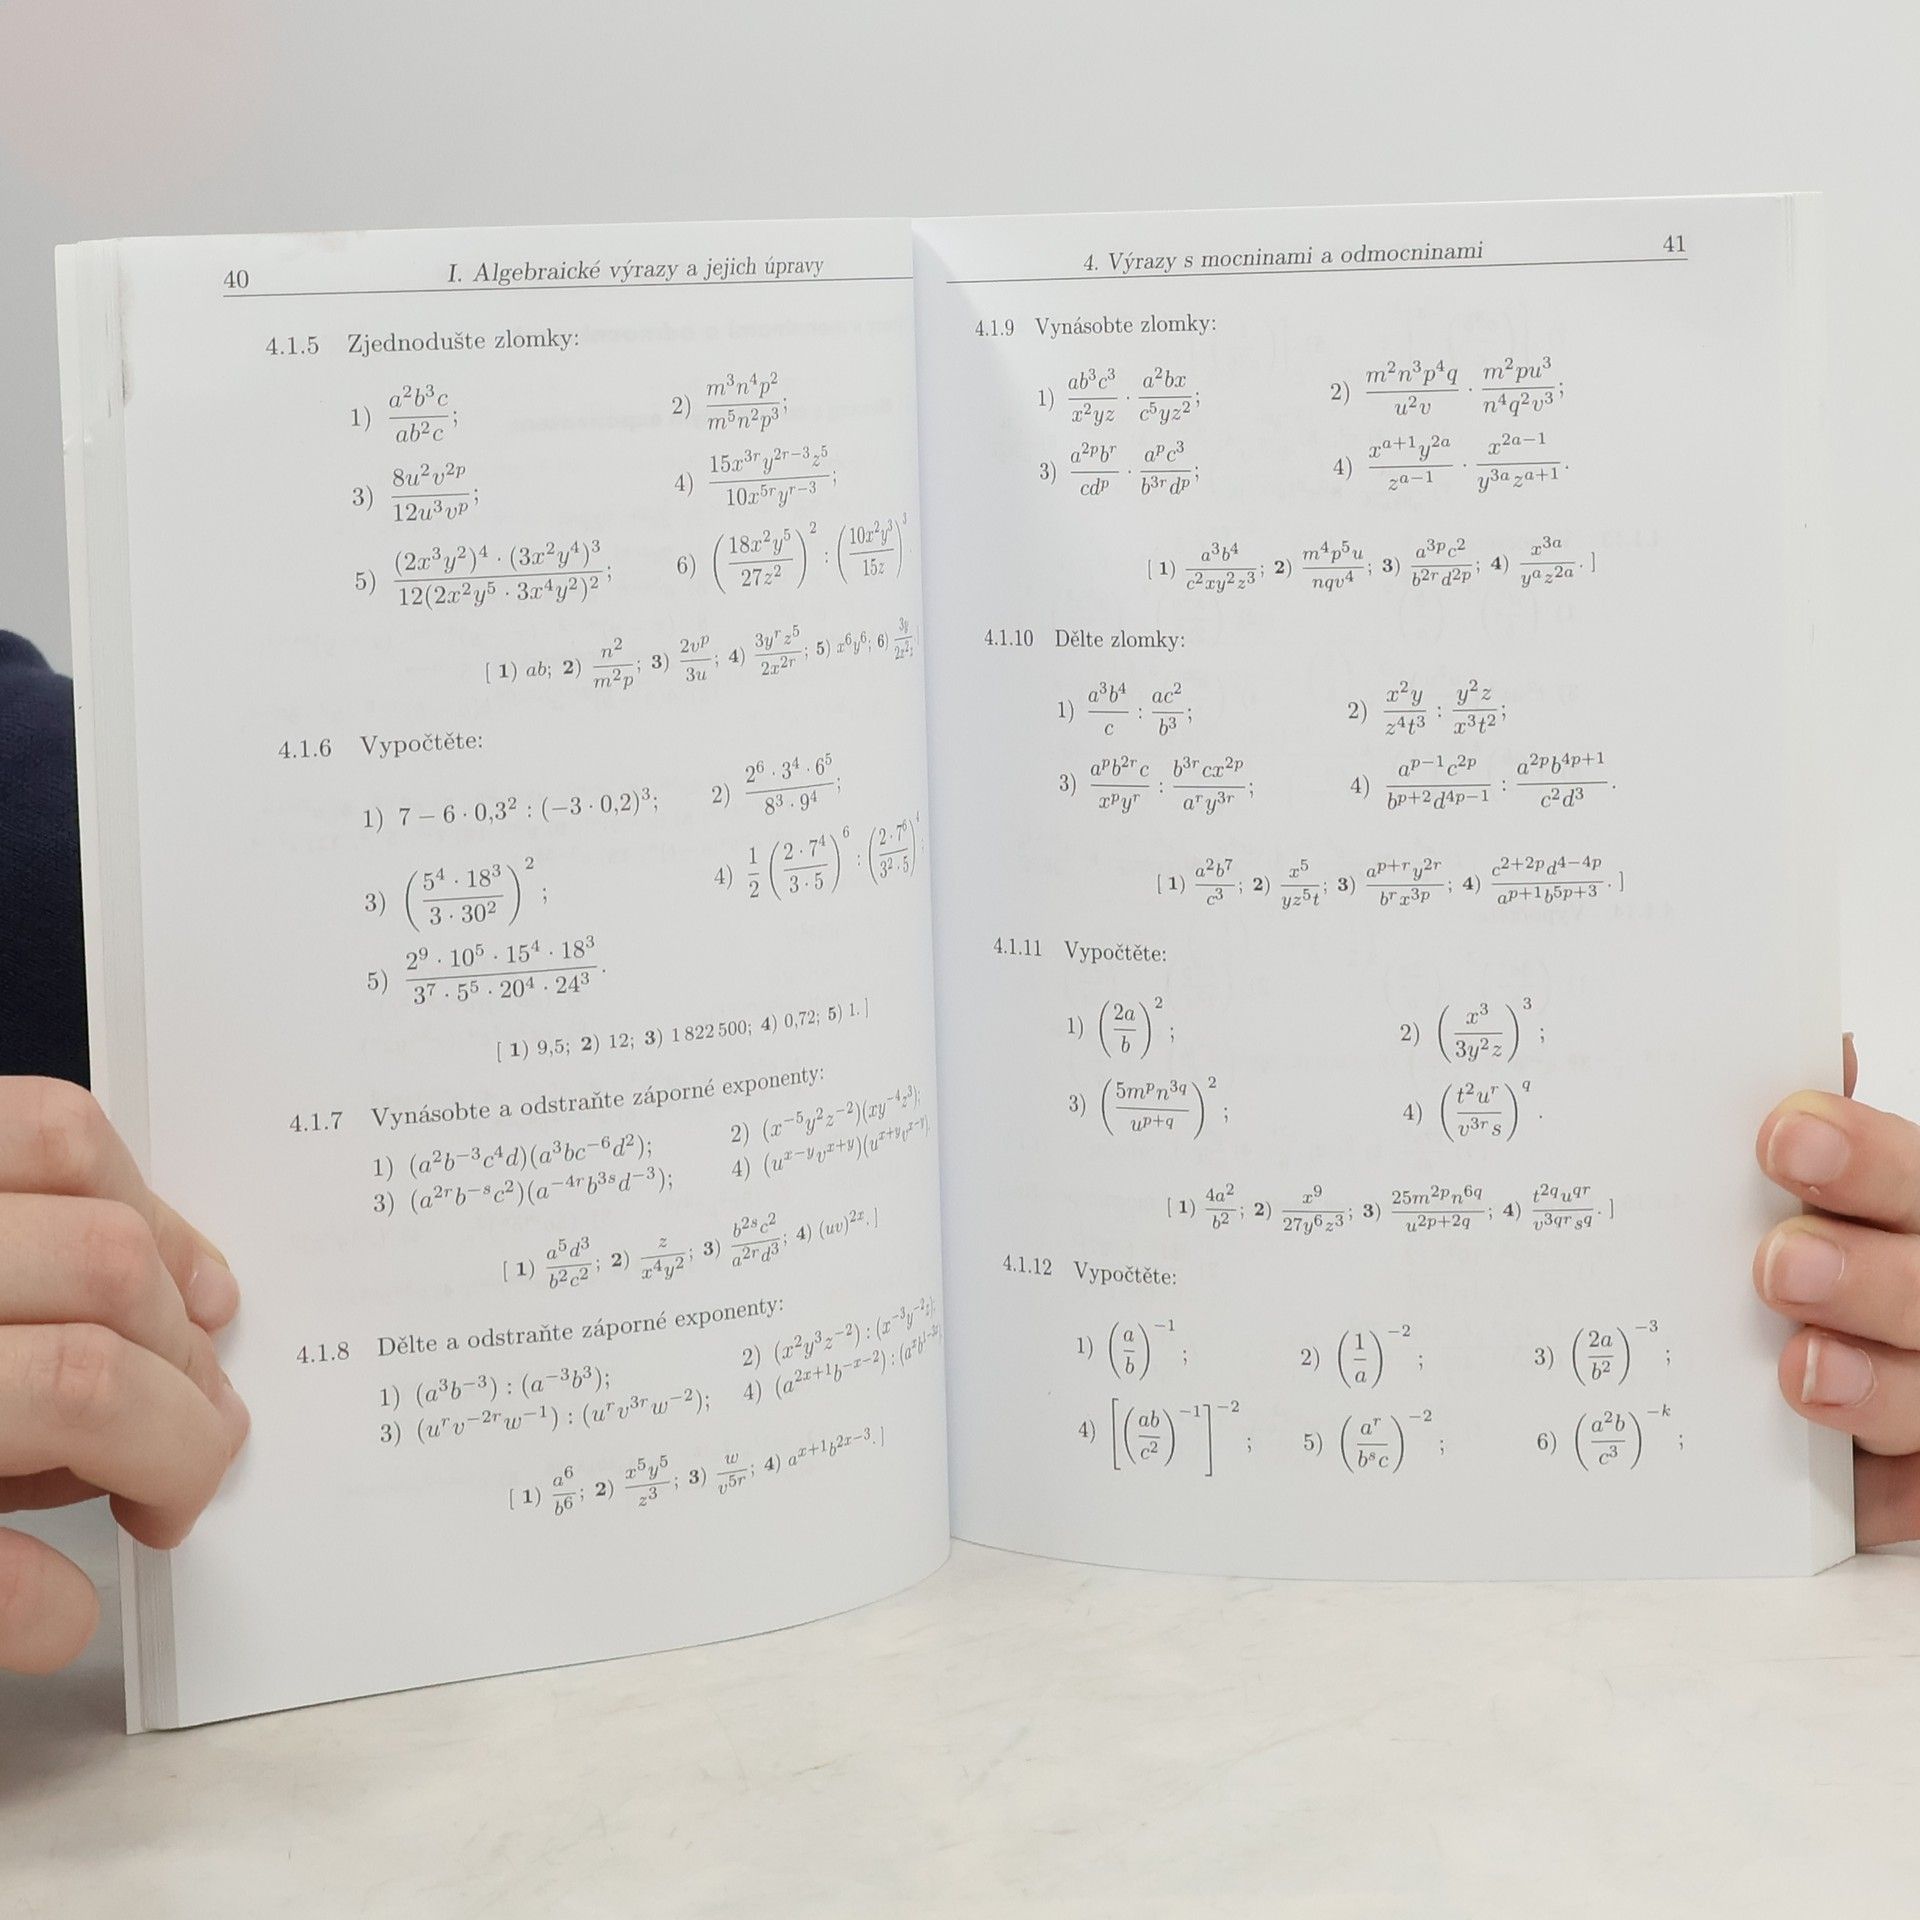 40 I. Algebraické výrazy a jejich úpravy
4.1.5 Zjednodušte zlomky:
1) \frac{a^2b^3c}{ab^2c}; 2) \frac{m^3n^4p^2}{m^5n^2p^3};
3) \frac{8u^2v^{2p}}{12u^3v^p}; 4) \frac{15x^{3r}y^{2r-3}z^5}{10x^{5r}y^{r-3}};
5) \frac{(2x^3y^2)^4 · (3x^2y^4)^3}{12(2x^2y^5 · 3x^4y^2)^2}; 6) (\frac{18x^2y^5}{27z^2})^2 : (\frac{10x^2y^3}{15z})^3
[ 1) ab; 2) \frac{n^2}{m^2p}; 3) \frac{2v^p}{3u}; 4) \frac{3y^rz^5}{2x^{2r}}; 5) x^6y^6; 6) \frac{3y}{2z^2};
4.1.6 Vypočtěte:
1) 7 − 6 · 0,3^2 : (−3 · 0,2)^3; 2) \frac{2^6 · 3^4 · 6^5}{8^3 · 9^4};
3) (\frac{5^4 · 18^3}{3 · 30^2})^2; 4) \frac{1}{2} (\frac{2 · 7^4}{3 · 5})^6 : (\frac{2 · 7^6}{3^2 · 5})^4;
5) \frac{2^9 · 10^5 · 15^4 · 18^3}{3^7 · 5^5 · 20^4 · 24^3}.
[ 1) 9,5; 2) 12; 3) 1 822 500; 4) 0,72; 5) 1. ]
4.1.7 Vynásobte a odstraňte záporné exponenty:
1) (a^2b^{-3}c^4d)(a^3bc^{-6}d^2); 2) (x^{-5}y^2z^{-2})(xy^{-4}z^3);
3) (a^{2r}b^{-s}c^2)(a^{-4r}b^{3s}d^{-3}); 4) (u^{x-y}v^{x+y})(u^{x+y}v^{x-y}).
[ 1) \frac{a^5d^3}{b^2c^2}; 2) \frac{z}{x^4y^2}; 3) \frac{b^{2s}c^2}{a^{2r}d^3}; 4) (uv)^{2x}. ]
4.1.8 Dělte a odstraňte záporné exponenty:
1) (a^3b^{-3}) : (a^{-3}b^3); 2) (x^2y^3z^{-2}) : (x^{-3}y^{-2}z);
3) (u^rv^{-2r}w^{-1}) : (u^rv^{3r}w^{-2}); 4) (a^{2x+1}b^{-x-2}) : (a^xb^{1-3x}
[ 1) \frac{a^6}{b^6}; 2) \frac{x^5y^5}{z^3}; 3) \frac{w}{v^{5r}}; 4) a^{x+1}b^{2x-3}. ]
4. Výrazy s mocninami a odmocninami 41
4.1.9 Vynásobte zlomky:
1) \frac{ab^3c^3}{x^2yz} · \frac{a^2bx}{c^5yz^2}; 2) \frac{m^2n^3p^4q}{u^2v} · \frac{m^2pu^3}{n^4q^2v^3};
3) \frac{a^{2p}b^r}{cd^p} · \frac{a^pc^3}{b^{3r}d^p}; 4) \frac{x^{a+1}y^{2a}}{z^{a-1}} · \frac{x^{2a-1}}{y^{3a}z^{a+1}}.
[ 1) \frac{a^3b^4}{c^2xy^2z^3}; 2) \frac{m^4p^5u}{nqv^4}; 3) \frac{a^{3p}c^2}{b^{2r}d^{2p}}; 4) \frac{x^{3a}}{y^az^{2a}}. ]
4.1.10 Dělte zlomky:
1) \frac{a^3b^4}{c} : \frac{ac^2}{b^3}; 2) \frac{x^2y}{z^4t^3} : \frac{y^2z}{x^3t^2};
3) \frac{a^pb^{2r}c}{x^py^r} : \frac{b^{3r}cx^{2p}}{a^ry^{3r}}; 4) \frac{a^{p-1}c^{2p}}{b^{p+2}d^{4p-1}} : \frac{a^{2p}b^{4p+1}}{c^2d^3}.
[ 1) \frac{a^2b^7}{c^3}; 2) \frac{x^5}{yz^5t}; 3) \frac{a^{p+r}y^{2r}}{b^rx^{3p}}; 4) \frac{c^{2+2p}d^{4-4p}}{a^{p+1}b^{5p+3}}. ]
4.1.11 Vypočtěte:
1) (\frac{2a}{b})^2; 2) (\frac{x^3}{3y^2z})^3;
3) (\frac{5m^pn^{3q}}{u^{p+q}})^2; 4) (\frac{t^2u^r}{v^{3r}s})^q.
[ 1) \frac{4a^2}{b^2}; 2) \frac{x^9}{27y^6z^3}; 3) \frac{25m^{2p}n^{6q}}{u^{2p+2q}}; 4) \frac{t^{2q}u^{qr}}{v^{3qr}s^q}. ]
4.1.12 Vypočtěte:
1) (\frac{a}{b})^{-1}; 2) (\frac{1}{a})^{-2}; 3) (\frac{2a}{b^2})^{-3};
4) [(\frac{ab}{c^2})^{-1}]^{-2}; 5) (\frac{a^r}{b^sc})^{-2}; 6) (\frac{a^2b}{c^3})^{-k};